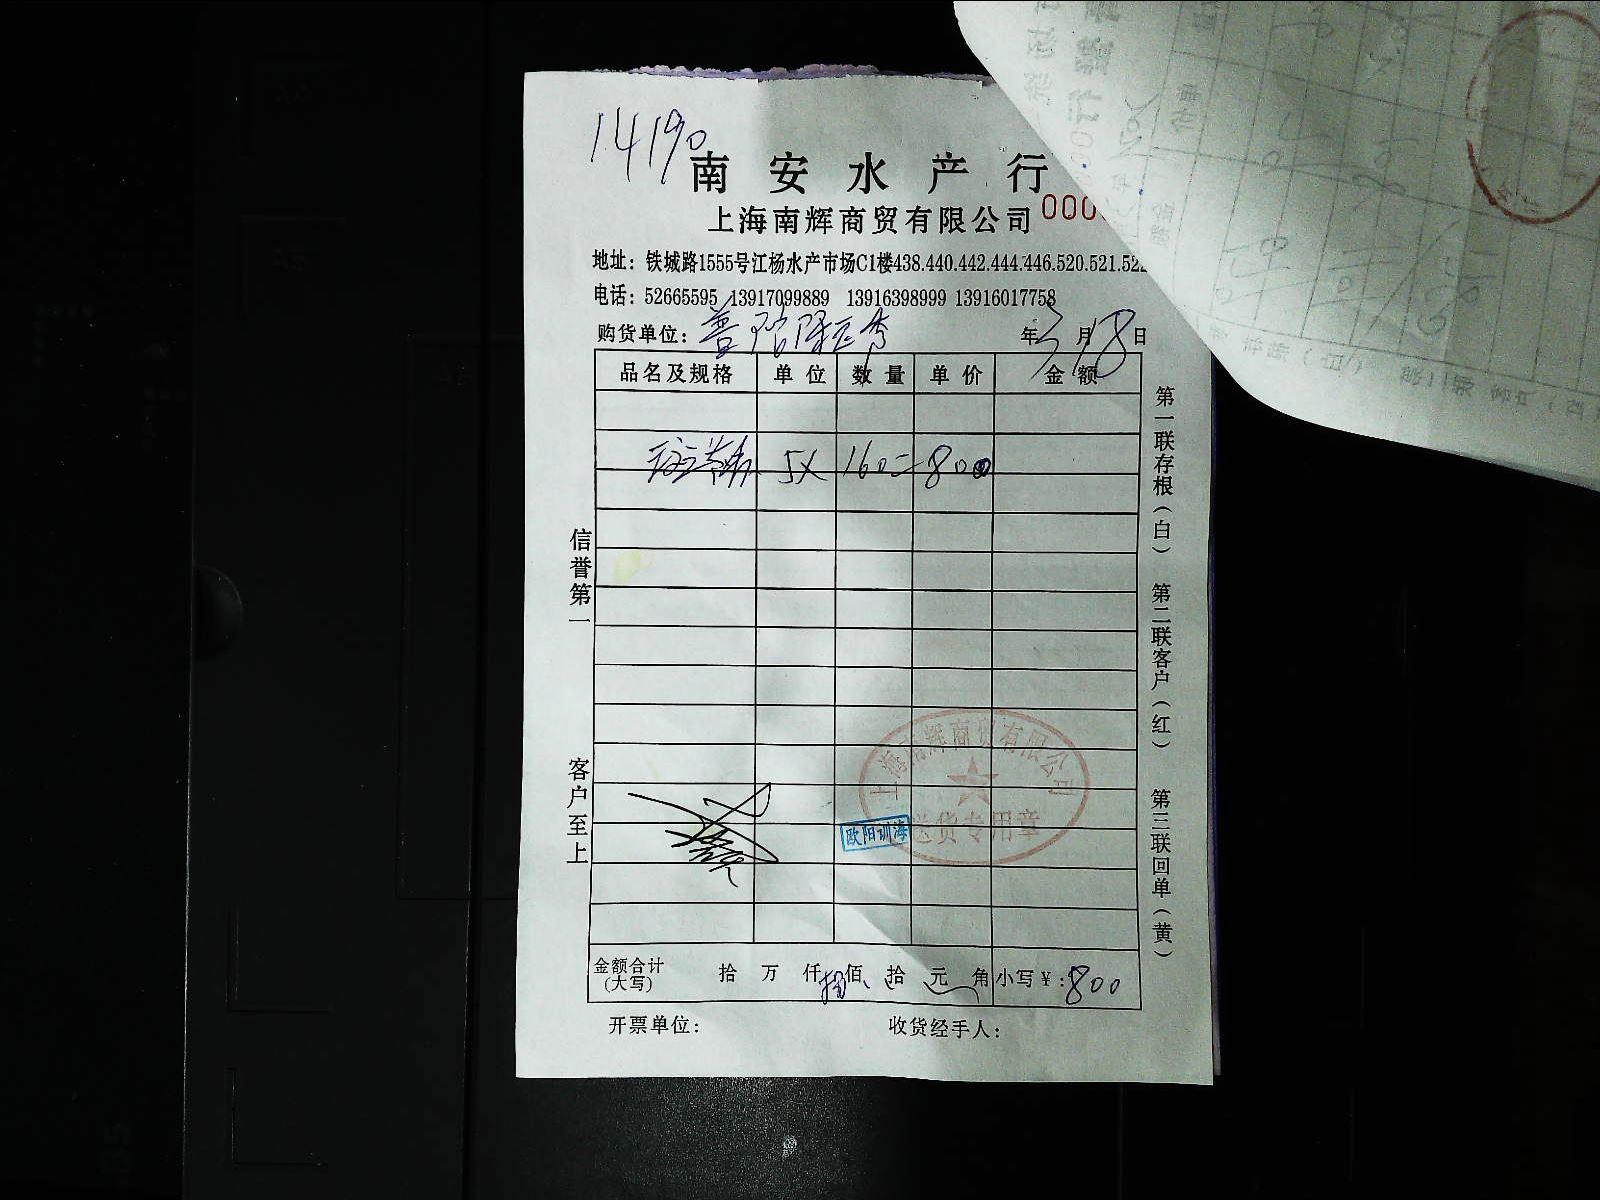 14190
南安水产行
上海南辉商贸有限公司 000
地址：铁城路1555号江杨水产市场C1楼438.440.442.444.446.520.521.522
电话：52665595 13917099889 13916398999 13916017758
购货单位：普陀 年3月18日
品名及规格 单位 数量 单价 金额
5X 160=800
信誉第一
客户至上
第一联存根（白） 第二联客户（红） 第三联回单（黄）
上海南辉商贸有限公司
送货专用章
欧阳训海
金额合计(大写) 拾 万 仟 捌 佰 拾 元 角 小写￥:800
开票单位： 收货经手人：